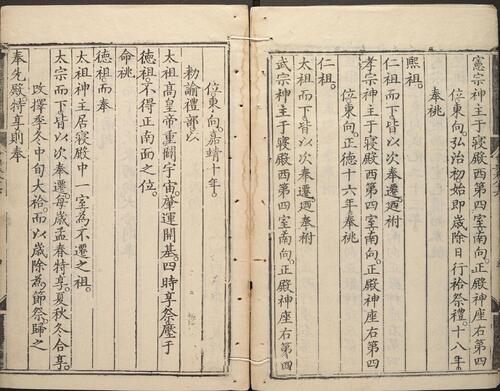 憲宗神主于寢殿西第四室南向。正殿神座右第四
位東向。弘治初始即歲除日行祫祭禮。十八年
奉祧
熙祖。
仁祖而下皆以次奉遷迺祔
孝宗神主于寢殿西第四室南向。正殿神座右第四
位東向。正德十六年奉祧
仁祖。
太祖而下皆以次奉遷迺奉祔
武宗神主于寢殿西第四室南向。正殿神座右第四
位東向。嘉靖十年。
勑諭禮部以
太祖高皇帝重闢宇宙。肇運開基。四時享祭壓于
德祖。不得正南面之位。
命祧
德祖而奉
太祖神主居寢殿中一室為不遷之祖。
太宗而下皆以次奉遷。每歲孟春特享。夏秋冬合享。
改擇季冬中旬大祫。而以歲除為節祭。歸之
奉先殿特享則奉